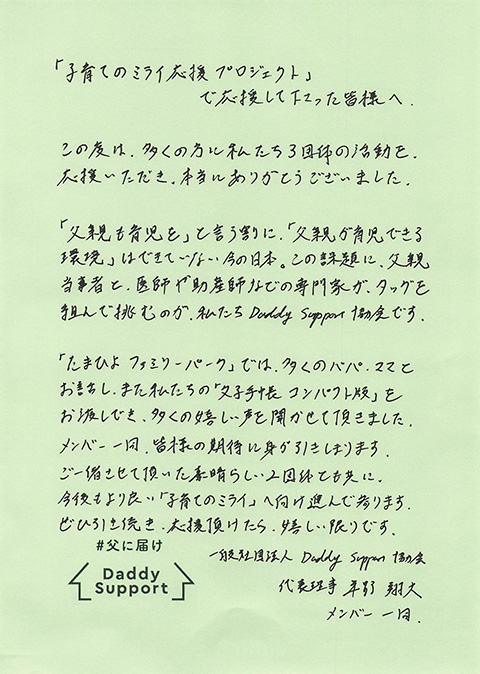 「子育てのミライ応援プロジェクト」
で応援して下さった皆様へ.
この度は、多くの方に私たち3団体の活動を、
応援いただき、本当にありがとうございました.
「父親も育児を」と言う割に、「父親が育児できる
環境」はできていない今の日本。この課題に、父親
当事者と、医師や助産師などの専門家が、タッグを
組んで挑むのが、私たち Daddy Support 協会です.
「たまひよ ファミリーパーク」では、多くのパパ・ママと
お話し、また私たちの「父子手帳 コンパクト版」を
お渡しでき、多くの嬉しい声を聞かせて頂きました.
メンバー一同、皆様の期待に身が引きしまります.
ご一緒させて頂いた素晴らしい2団体と共に、
今後もより良い「子育てのミライ」へ向け進んで参ります.
ぜひ引き続き、応援頂けたら、嬉しい限りです.
#父に届け
Daddy
Support
一般社団法人 Daddy Support 協会
代表理事 平野 翔大
メンバー 一同.